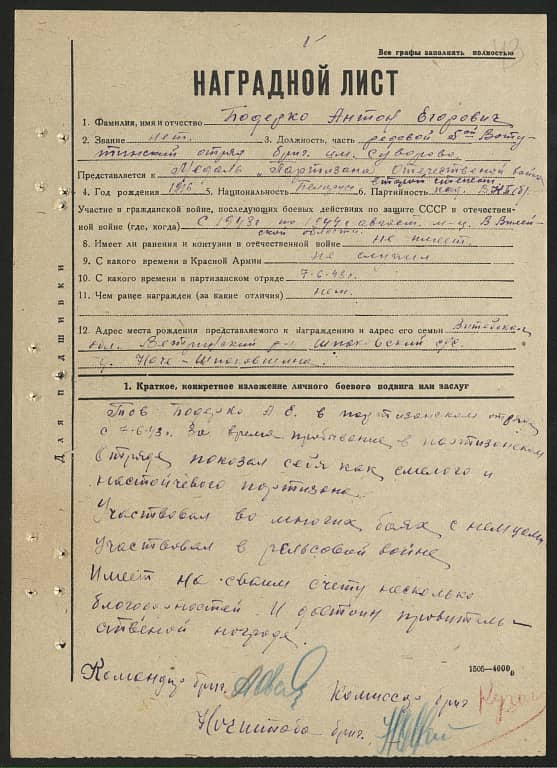 43
1
Все графы заполнять полностью
НАГРАДНОЙ ЛИСТ
1. Фамилия, имя и отчество Бодерко Антон Егорович
2. Звание нет. 3. Должность, часть рядовой
отряд бриг. им. Суворова.
Представляется к Медаль „Партизана Отечественной войны
второй степени
4. Год рождения 1916 5. Национальность Белорус 6. Партийность ВКП(б).
Участие в гражданской войне, последующих боевых действиях по защите СССР в отечествен-
ной войне (где, когда) С 1943 г. по 1944 г. август. м-ц. В Вилей-
ской области.
8. Имеет ли ранения и контузии в отечественной войне не имеет.
9. С какого времени в Красной Армии не служил
10. С какого времени в партизанском отряде 7-6-43 г.
11. Чем ранее награжден (за какие отличия) нет.
12. Адрес места рождения представляемого к награждению и адрес его семьи Витебская
обл. Ветринский р-н Шпаковский с/с.
д.
Для подшивки
1. Краткое, конкретное изложение личного боевого подвига или заслуг
Тов Бодерко А Е. в партизанском отряде
с 7-6-43 г. За время пребывание в партизанском
отряде показал себя как смелого и
настойчевого партизана.
Участвовал во многих боях с немцами
Участвовал в рельсовой войне
Имеет на своим счету несколько
благодарностей. И достоин провитель-
ственой награде.
1505—4000
Командир бриг. Комиссар бриг
Начштаба бриг.